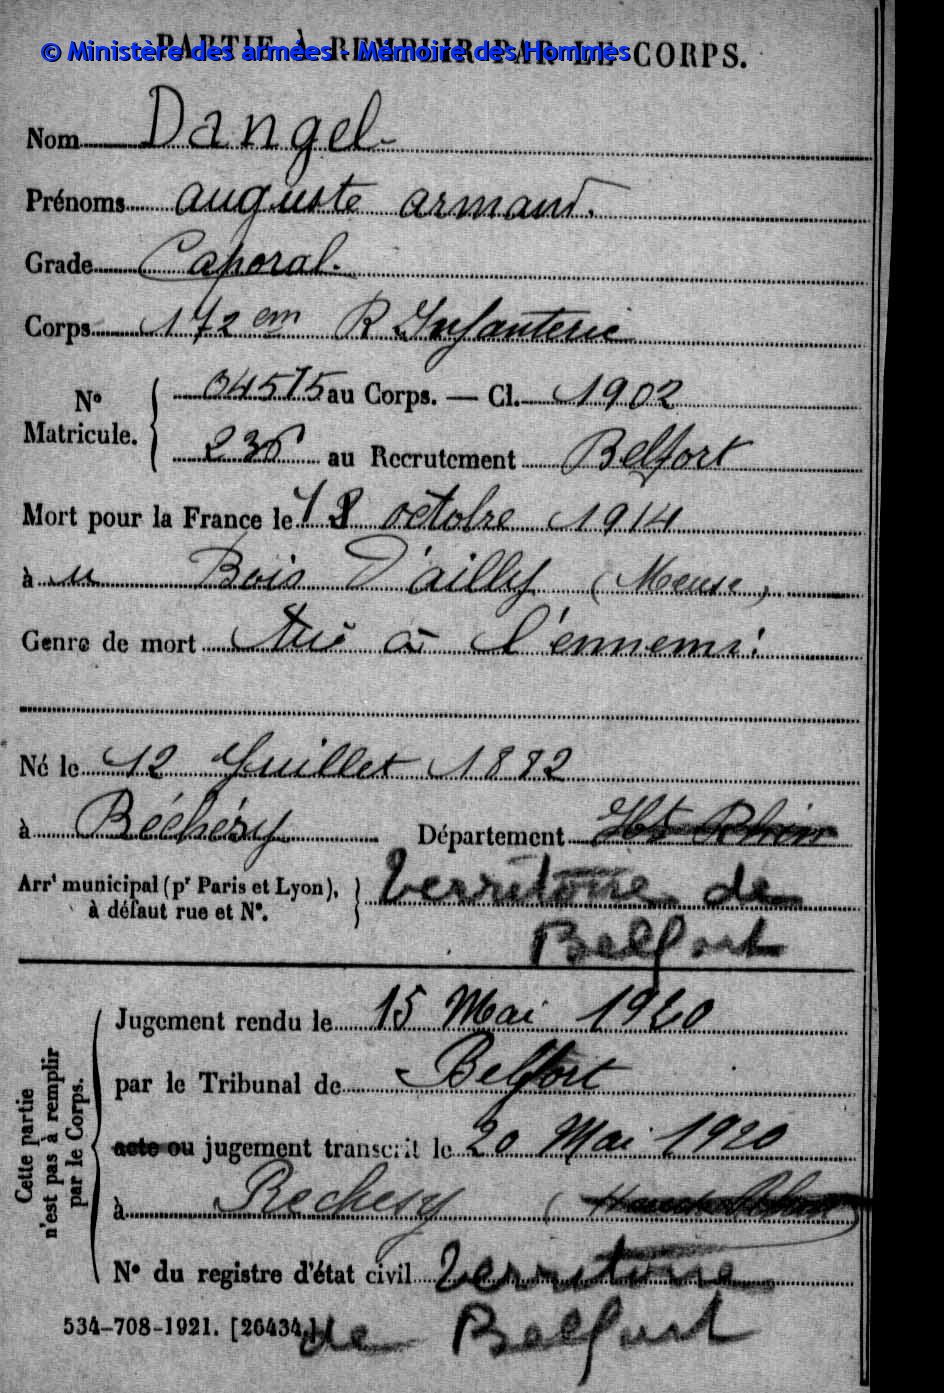 PARTIE À REMPLIR PAR LE CORPS.
© Ministère des armées - Mémoire des Hommes
Nom Dangel
Prénoms auguste armand.
Grade Caporal.
Corps 172 em R Infanterie
N° Matricule. 04575 au Corps. — Cl. 1902
236 au Recrutement Belfort
Mort pour la France le 18 octobre 1914
à u Bois D'ailly (Meuse)
Genre de mort tué à l'ennemi.
Né le 12 Juillet 1882
à Réchésy Département Ht Rhin
Arrt municipal (pr Paris et Lyon), à défaut rue et N°. Territoire de
Belfort
Cette partie n'est pas à remplir par le Corps.
Jugement rendu le 15 Mai 1920
par le Tribunal de Belfort
acte ou jugement transcrit le 20 Mai 1920
à Rechesy (Haut Rhin)
N° du registre d'état civil Territoire
534-708-1921. [26434.] de Belfort